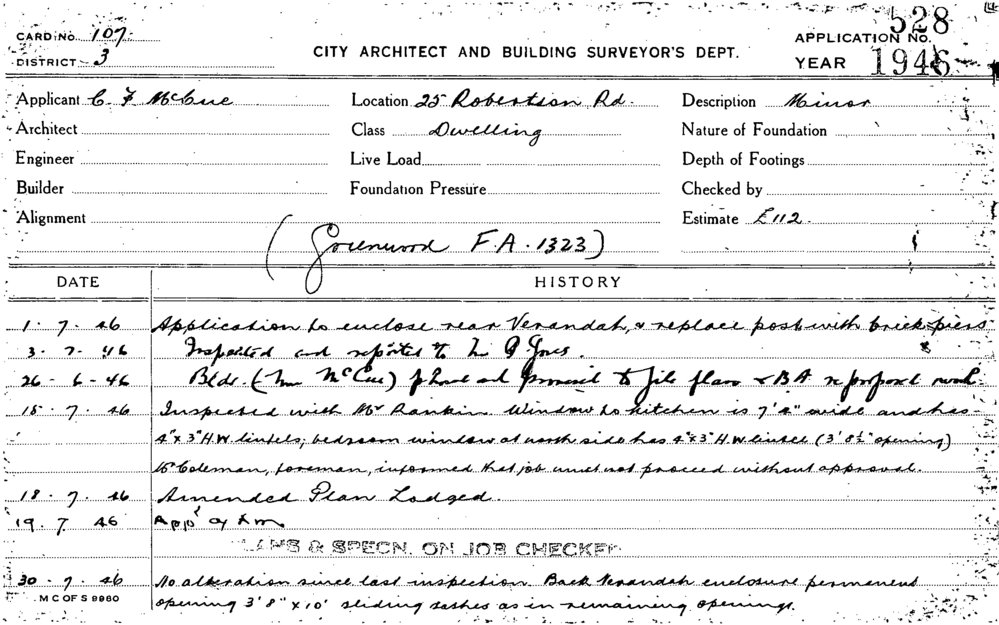 CARD No. 107
DISTRICT 3
CITY ARCHITECT AND BUILDING SURVEYOR'S DEPT.
APPLICATION No. 528
YEAR 1946
Applicant C F McCue
Location 25 Robertson Rd.
Description Minor
Architect
Class Dwelling
Nature of Foundation
Engineer
Live Load
Depth of Footings
Builder
Foundation Pressure
Checked by
Alignment
Estimate £112.
(Greenwood F.A. 1323)
DATE HISTORY
1. 7. 46 Application to enclose rear Verandah, & replace post with brick piers
3. 7. 46 Inspected and reported to
26 - 6 - 46 Bldr. (Mr McCue) phoned and promised to file plans & BA re proposed work
15. 7. 46 Inspected with Mr Rankin. Window to kitchen is 7' 4" wide and has
4" x 3" H.W. lintels; bedroom window at north side has 4" x 3" H.W. lintel (3' 8½" opening)
Coleman, foreman, informed that job must not proceed without approval.
18. 7. 46 Amended Plan Lodged.
19. 7. 46 App'
PLANS & SPECN. ON JOB CHECKED
30. 7. 46 No alteration since last inspection. Back Verandah enclosure permanent
M C OF S 9960
opening 3' 8" x 10' sliding sashes as in remaining openings.